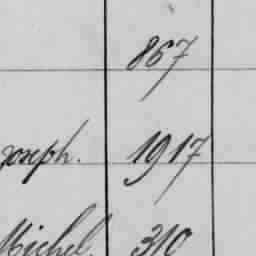 867
Joseph. 1917
Michel. 310